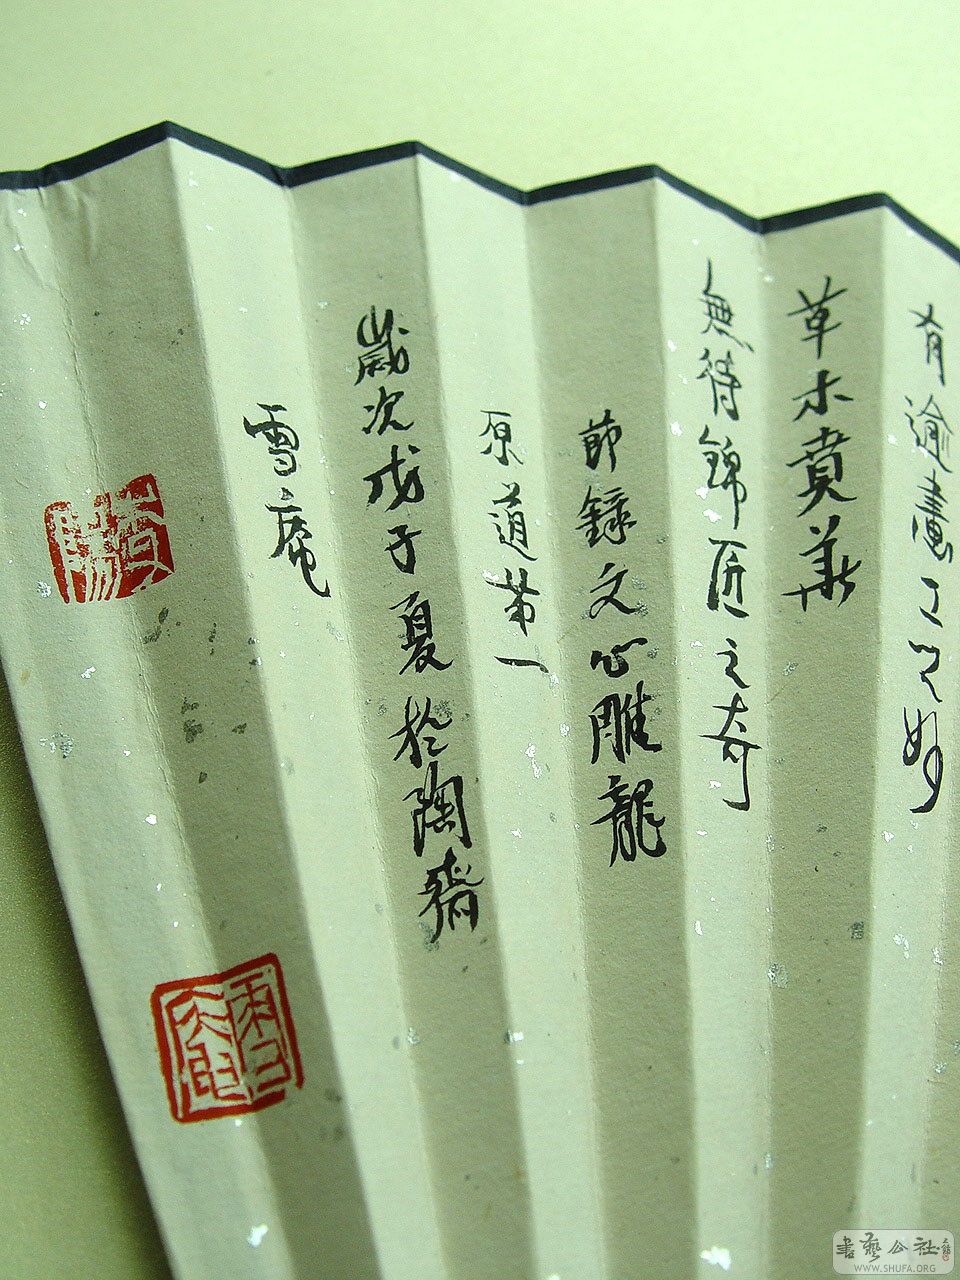 有逾畫工之妙
草木賁華
無待錦匠之奇
節錄文心雕龍
原道第一
歲次戊子夏於陶齋
雪庵
書藝公社
WWW.SHUFA.ORG